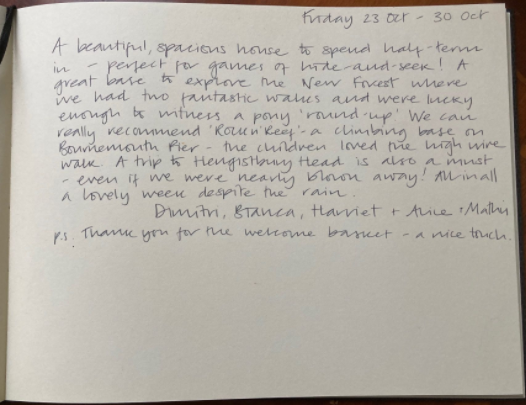 Friday 23 Oct - 30 Oct
A beautiful, spacious house to spend half-term
in - perfect for games of hide-and-seek! A
great base to explore the New Forest where
we had two fantastic walks and were lucky
enough to witness a pony 'round-up'. We can
really recommend 'Rock n Reef' - a climbing base on
Bournemouth Pier - the children loved the high wire
walk. A trip to Hengistbury Head is also a must
- even if we were nearly blown away! All in all
a lovely week despite the rain.
Dimitri, Bianca, Harriet + Alice + Mathis
p.s. Thank you for the welcome basket - a nice touch.